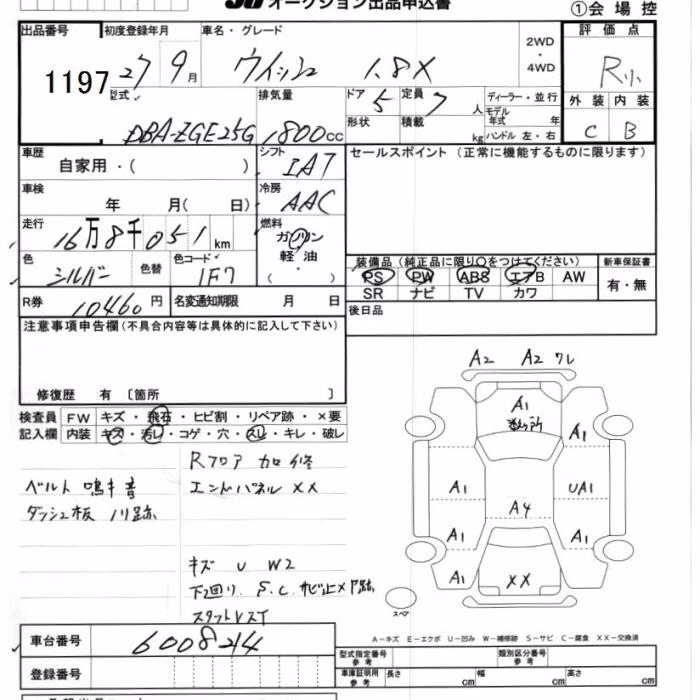 オークション出品申込書
①会場控
出品番号
1197
初度登録年月
27 9月
車名・グレード
ウイッシュ 1.8X
2WD
・
4WD
評価点
R
外装 内装
C B
型式
DBA-ZGE25G
排気量
1800cc
ドア 5
定員 7人
形状
積載 kg
ディーラー・並行
モデル年式 年
ハンドル 左・右
車歴
自家用・( )
シフト
IAT
セールスポイント(正常に機能するものに限ります)
車検
年 月( 日)
冷房
AAC
走行
16万8千051km
燃料
ガソリン
軽油
・
( )
色
シルバー
色替
色コード
1F7
装備品(純正品に限り○をつけてください)
PS PW ABS エアB AW
SR ナビ TV カワ
新車保証書
有・無
R券
10460円
名変通知期限 月 日
後日品
注意事項申告欄(不具合内容等は具体的に記入して下さい)
修復歴 有 〔箇所 〕
検査員
記入欄
FW キズ・飛石・ヒビ割・リペア跡・×要
内装 キズ・汚レ・コゲ・穴・スレ・キレ・破レ
Rフロア 加修
ベルト 鳴キ音
エンドパネル XX
ダッシュ板 ノリ跡
キズ U W2
下回り、S.C.サビ止メP跡
A2 A2 ワレ
A1
A1
A1 UA1
A4
A1 A1
A1 XX A1
スペア
A-キズ E-エクボ U-凹み W-補修跡 S-サビ C-腐食 XX-交換済
車台番号
6008214
型式指定番号
参考
類別区分番号
参考
登録番号
車庫証明用
参考
長さ cm 幅 cm 高さ cm